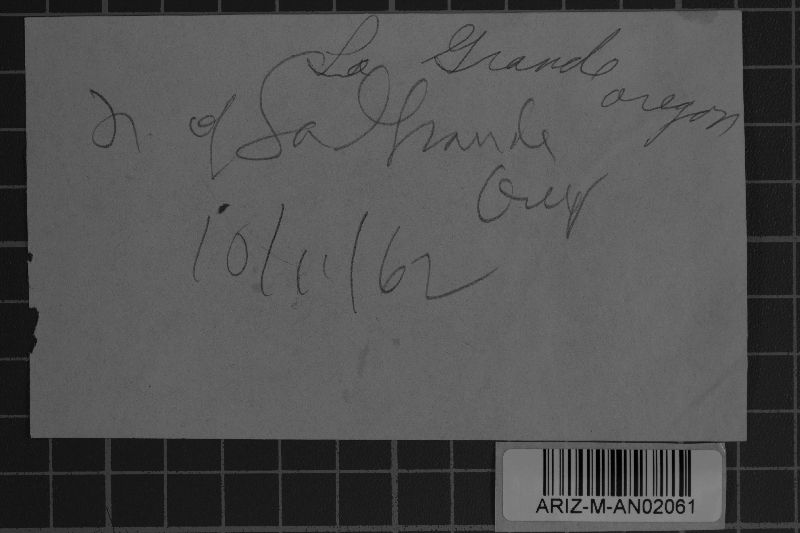 La Grande
oregon
N. of La Grande
Oreg
10/11/62
ARIZ-M-AN02061